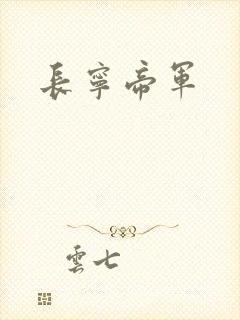 長寧帝軍
雲七